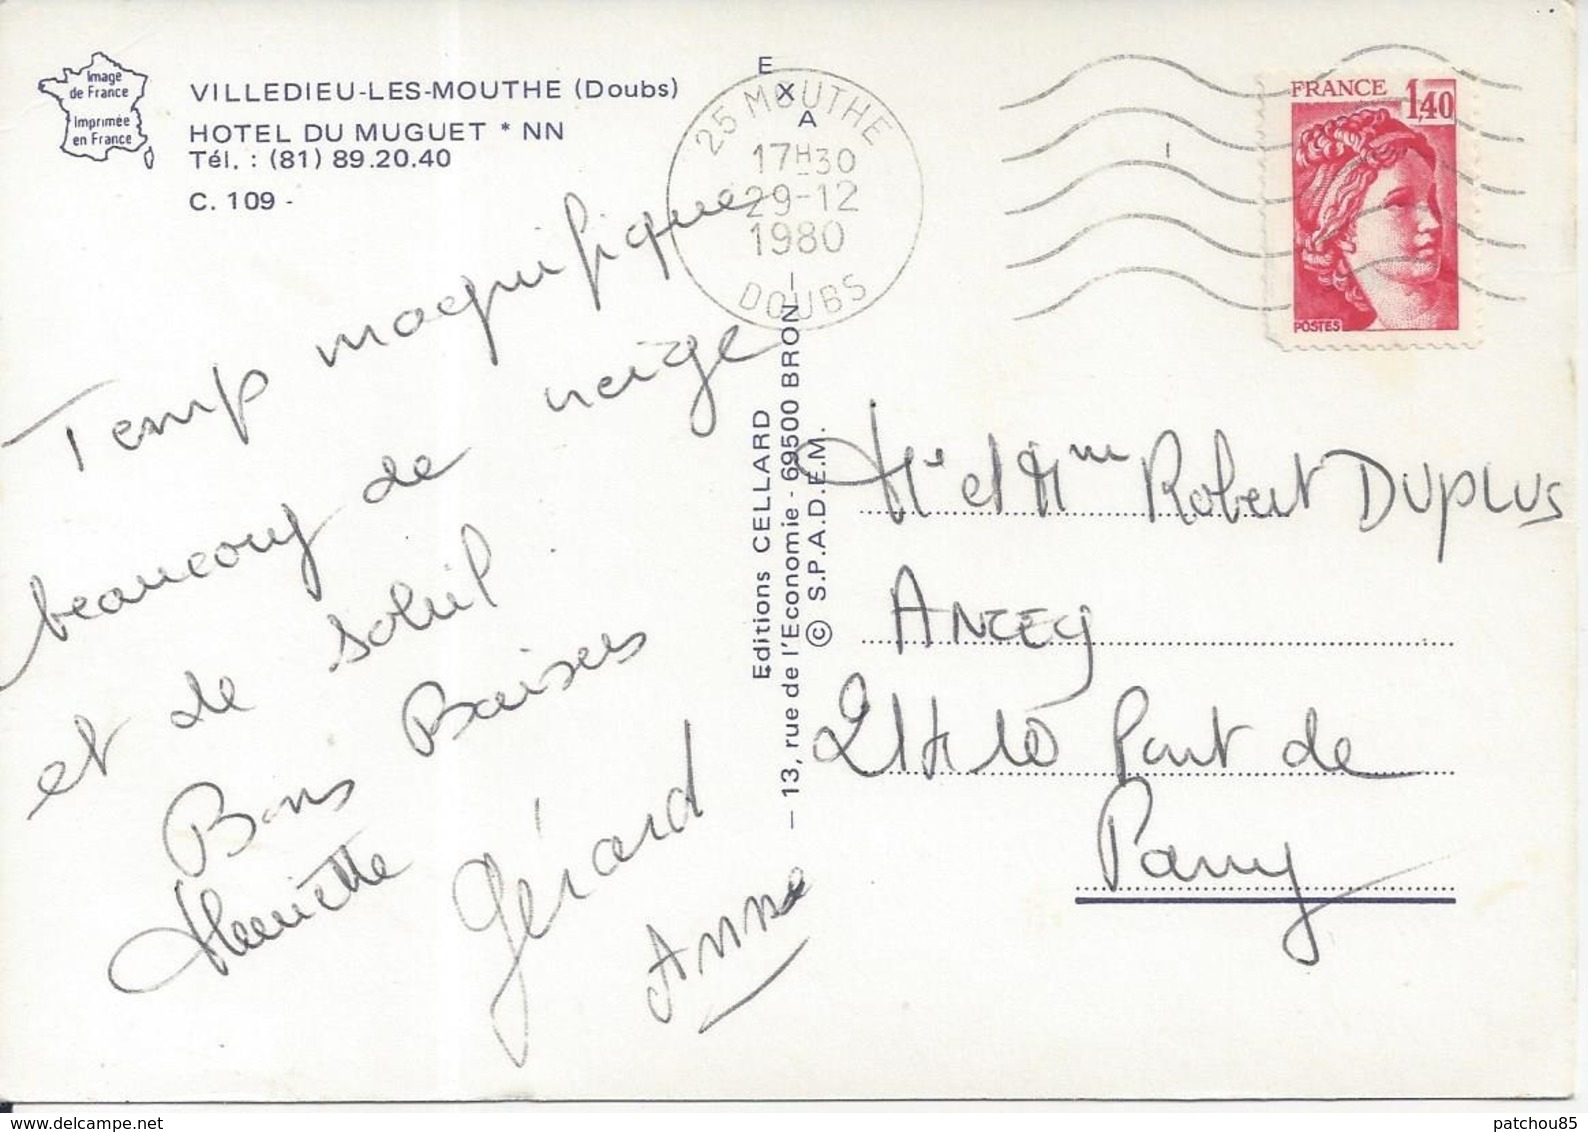 Image
de France
Imprimée
en France
VILLEDIEU-LES-MOUTHE (Doubs)
HOTEL DU MUGUET * NN
Tél. : (81) 89.20.40
C. 109 -
Temp magnifique
beaucoup de neige
et de soleil
Bons Baisers
Henriette Gérard
Anne
E
X
A
Editions CELLARD
— 13, rue de l'Economie - 69500 BRON —
© S.P.A.D.E.M.
25 MOUTHE
17H30
29-12
1980
DOUBS
FRANCE 1,40
POSTES
Mr et Mme Robert DUPLUS
ANCEY
21410 Pont de
Pany
patchou85